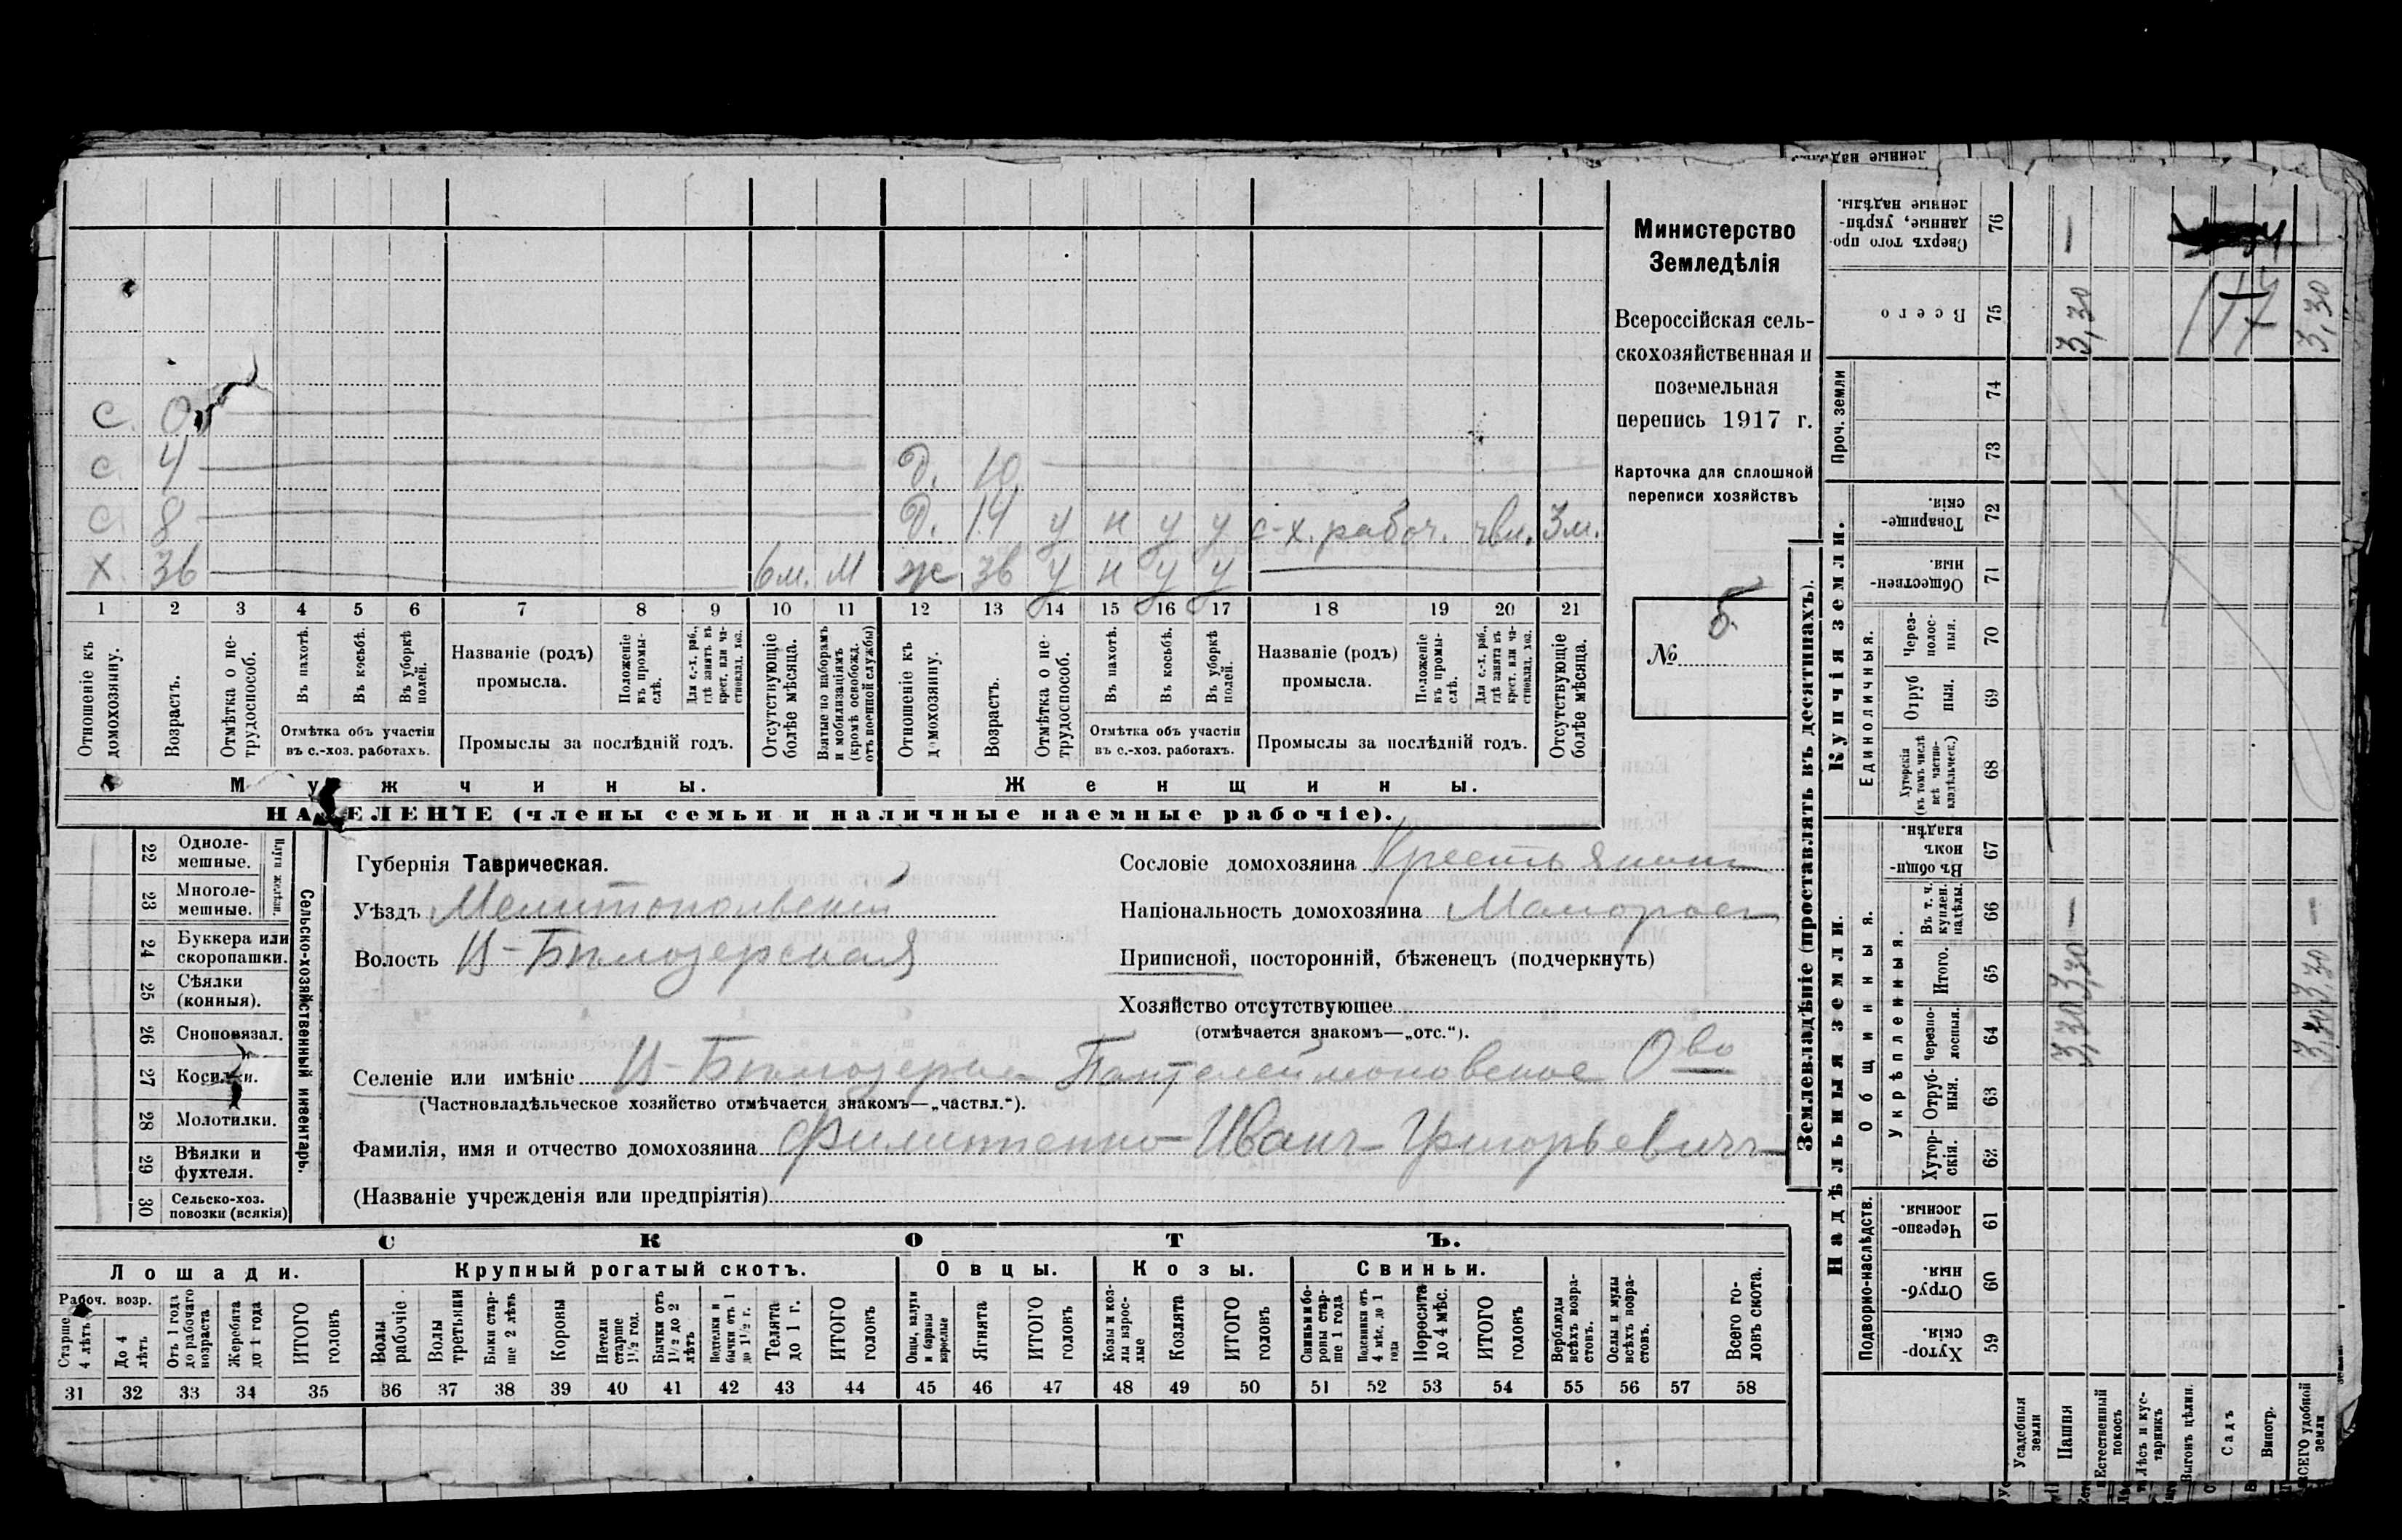 с. 0
с. 4 д. 10
с. 8 д. 14 у н у у с-х. рабоч. чвл. 3м.
х. 36 6м. м ж 36 у н у у
1 2 3 4 5 6 7 8 9 10 11 12 13 14 15 16 17 18 19 20 21
Отношеніе къ домохозяину.
Возрастъ.
Отмѣтка о не-
трудоспособ.
Въ пахотѣ.
Въ косьбѣ.
Въ уборкѣ полей.
Отмѣтка объ участіи
въ с.-хоз. работахъ.
Названіе (родъ)
промысла.
Положеніе
въ промы-
слѣ.
Для с.-х. раб.,
гдѣ занятъ въ
крест. или ча-
стновлад. хоз.
Промыслы за послѣдній годъ.
Отсутствующіе
болѣе мѣсяца.
Взятые по наборамъ
и мобилизаціямъ
(кромѣ освобожд.
отъ военной службы)
Отношеніе къ
домохозяину.
Возрастъ.
Отмѣтка о не-
трудоспособ.
Въ пахотѣ.
Въ косьбѣ.
Въ уборкѣ
полей.
Отмѣтка объ участіи
въ с.-хоз. работахъ.
Названіе (родъ)
промысла.
Положеніе
въ промы-
слѣ.
Для с.-х. раб.,
гдѣ занята въ
крест. или ча-
стновлад. хоз.
Промыслы за послѣдній годъ.
Отсутствующіе
болѣе мѣсяца.
Мужчины. Женщины.
НАСЕЛЕНІЕ (члены семьи и наличные наемные рабочіе).
Министерство
Земледѣлія
Всероссійская сель-
скохозяйственная и
поземельная
перепись 1917 г.
Карточка для сплошной
переписи хозяйствъ
№ 5
22 Одноле-
мешные.
23 Многоле-
мешные.
Плуги желѣзн.
24 Буккера или
скоропашки.
25 Сѣялки
(конныя).
26 Сноповязал.
27 Косилки.
28 Молотилки.
29 Вѣялки и
фухтеля.
30 Сельско-хоз.
повозки (всякія)
Сельско-хозяйственный инвентарь.
Губернія Таврическая.
Уѣздъ Мелитопольский
Волость В-Бѣлозерская
Сословіе домохозяина Крестьянинъ
Національность домохозяина Малоросс
Приписной, посторонній, бѣженецъ (подчеркнуть)
Хозяйство отсутствующее
(отмѣчается знакомъ—„отс.“).
Селеніе или имѣніе В-Бѣлозерка Пантелеймоновское О-во
(Частновладѣльческое хозяйство отмѣчается знакомъ—„частвл.“).
Фамилія, имя и отчество домохозяина Филипенко Иванъ Григорьевичъ
(Названіе учрежденія или предпріятія)
СКОТЪ.
Лошади. Крупный рогатый скотъ. Овцы. Козы. Свиньи.
Рабоч. возр.
Старше
4 лѣтъ
До 4
лѣтъ
Отъ 1 года
до рабочаго
возраста
Жеребята
до 1 года
ИТОГО
головъ
Волы
рабочіе
Волы
третьяки
Быки стар-
ше 2 лѣтъ
Коровы
Нетели
старше
1½ год.
Бычки отъ
1½ до 2
лѣтъ
Подтелки и
бычки отъ 1
до 1½ г.
Телята
до 1 г.
ИТОГО
головъ
Овцы, валухи
и бараны
взрослые
Ягнята
ИТОГО
головъ
Козы и коз-
лы взрос-
лые
Козлята
ИТОГО
головъ
Свиньи и бо-
ровы стар-
ше 1 года
Подсвинки отъ
4 мѣс. до 1
года
Поросята
до 4 мѣс.
ИТОГО
головъ
Верблюды
всѣхъ возра-
стовъ.
Ослы и мулы
всѣхъ возра-
стовъ.
Всего го-
ловъ скота.
31 32 33 34 35 36 37 38 39 40 41 42 43 44 45 46 47 48 49 50 51 52 53 54 55 56 57 58
Землевладѣніе (проставлять въ десятинахъ).
ленные надѣлы
Сверхъ того про-
данные, укрѣп-
ленные надѣлы.
76 —
Всего
75 3,30 17 3,30
Проч. земли
74
73
Купчія земли.
Товарище-
скія.
72
Обществен-
ныя.
71
Единоличныя.
Через-
полос-
ныя.
70
Отруб
ныя.
69
Хуторскія
(въ томъ числѣ
всѣ частно-
владѣльческ.)
68
Надѣльныя земли.
Общинныя.
Въ общин-
номъ
владѣн.
67
Укрѣпленныя.
Въ т. ч.
куплен.
надѣлы.
66 — —
Итого.
65 3,30 3,30
Черезпо-
лосныя.
64 3,30 3,30
Отруб-
ныя.
63
Хутор-
скія.
62
Подворно-наслѣдств.
Черезпо-
лосныя.
61
Отруб-
ныя.
60
Хутор-
скія.
59
Усадебныя
земли
Пашня
Естественный
покосъ
Лѣсъ и кус-
тарникъ
Выгонъ цѣлин.
Садъ
Виногр.
ВСЕГО удобной
земли